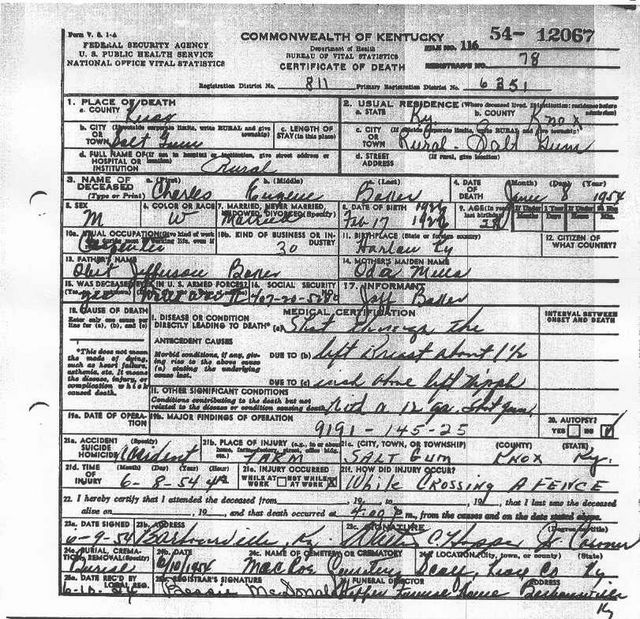 Form V. S. 1-A
FEDERAL SECURITY AGENCY
U. S. PUBLIC HEALTH SERVICE
NATIONAL OFFICE VITAL STATISTICS
COMMONWEALTH OF KENTUCKY
Department of Health
BUREAU OF VITAL STATISTICS
CERTIFICATE OF DEATH
FILE NO. 116 54- 12067
REGISTRAR'S NO. 78
Registration District No. 811 Primary Registration District No. 6351
1. PLACE OF DEATH
a. COUNTY Knox
2. USUAL RESIDENCE (Where deceased lived. If institution: residence before admission)
a. STATE Ky. b. COUNTY Knox
b. CITY (If outside corporate limits, write RURAL and give township)
OR TOWN Salt Gum
c. LENGTH OF STAY (in this place)
c. CITY (If outside corporate limits, write RURAL and give township)
OR TOWN Rural - Salt Gum
d. FULL NAME OF (If not in hospital or institution, give street address or location)
HOSPITAL OR INSTITUTION Rural
d. STREET ADDRESS (If rural, give location)
3. NAME OF DECEASED (Type or Print)
a. (First) Charles b. (Middle) Eugene c. (Last) Baker
4. DATE OF DEATH (Month) June (Day) 8 (Year) 1954
5. SEX M
6. COLOR OR RACE W
7. MARRIED, NEVER MARRIED, WIDOWED, DIVORCED (Specify) Married
8. DATE OF BIRTH Feb 17
9. AGE (In years last birthday) 28
10a. USUAL OCCUPATION (Give kind of work done during most of working life, even if retired)
10b. KIND OF BUSINESS OR INDUSTRY 30
11. BIRTHPLACE (State or foreign country) Harlan Ky
12. CITIZEN OF WHAT COUNTRY?
13. FATHER'S NAME Jefferson Baker
14. MOTHER'S MAIDEN NAME Oda Mills
15. WAS DECEASED EVER IN U. S. ARMED FORCES? yes
16. SOCIAL SECURITY NO. 407-20-5280
17. INFORMANT Jeff Baker
18. CAUSE OF DEATH
Enter only one cause per line for (a), (b), and (c)
MEDICAL CERTIFICATION
INTERVAL BETWEEN ONSET AND DEATH
I. DISEASE OR CONDITION DIRECTLY LEADING TO DEATH* (a) Shot through the
*This does not mean the mode of dying, such as heart failure, asthenia, etc. It means the disease, injury, or complication which caused death.
ANTECEDENT CAUSES
Morbid conditions, if any, giving rise to the above cause (a) stating the underlying cause last.
DUE TO (b) left Breast about 1½
DUE TO (c) inch above left Nipple
II. OTHER SIGNIFICANT CONDITIONS
Conditions contributing to the death but not related to the disease or condition causing death. with a 12 ga. Shot Gun
19a. DATE OF OPERATION
19b. MAJOR FINDINGS OF OPERATION
9191 - 145-25
20. AUTOPSY? YES NO
21a. ACCIDENT SUICIDE HOMICIDE (Specify) accident
21b. PLACE OF INJURY (e.g., in or about home, farm, factory, street, office bldg., etc.) FARM
21c. (CITY, TOWN, OR TOWNSHIP) SALT GUM (COUNTY) KNOX (STATE) Ky.
21d. TIME OF INJURY (Month) (Day) (Year) (Hour) 6-8-54
21e. INJURY OCCURRED WHILE AT WORK NOT WHILE AT WORK
21f. HOW DID INJURY OCCUR? While CROSSING A FENCE
22. I hereby certify that I attended the deceased from , 19 , to , 19 , that I last saw the deceased
alive on , 19 , and that death occurred at 4:00 p m., from the causes and on the date stated above.
23a. DATE SIGNED 6-9-54
23b. ADDRESS Barbourville, Ky
23c. SIGNATURE (Degree or title) Coroner
24a. BURIAL, CREMATION, REMOVAL (Specify) Burial
24b. DATE 6/10/1954
24c. NAME OF CEMETERY OR CREMATORY Cemetery
24d. LOCATION (City, town, or county) (State) Scalf, Knox Co Ky
25a. DATE REC'D BY LOCAL REG.
25b. REGISTRAR'S SIGNATURE Bessie McDonald
26. FUNERAL DIRECTOR Hopper Funeral Home
ADDRESS Barbourville Ky